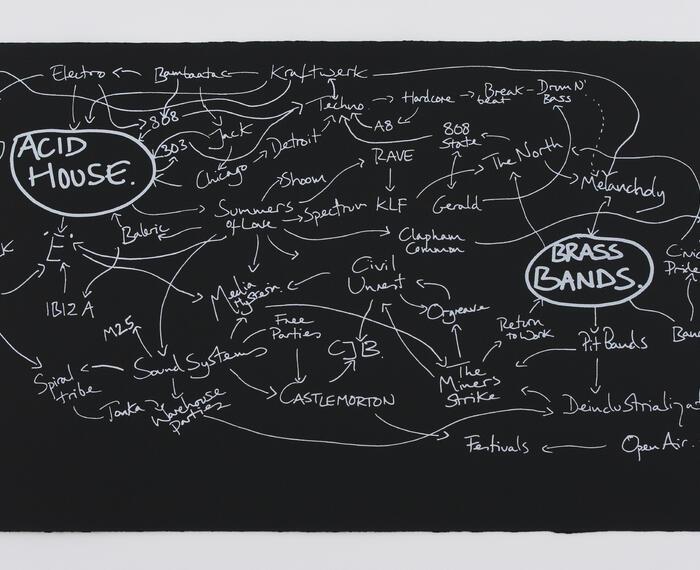 Electro
Bambaataa
Kraftwerk
Techno
Hardcore
Break
beat
Drum N'
Bass
808
A8
ACID
HOUSE.
303
Jack
Detroit
808
State
The North
Chicago
RAVE
Melancholy
Shoom
Summers
of Love
Spectrum
KLF
Gerald
Baleric
Clapham
Common
BRASS
BANDS.
Civic
Pride
K
"E".
IBIZA
Media
Hysteria
Civil
Unrest
Orgreave
M25
Free
Parties
CJB.
Return
to Work
Pit Bands
Ban
Sound Systems
Spiral
tribe
The
Miners
Strike
CASTLEMORTON
Tonka
Warehouse
Parties
Deindustrializat
Festivals
Open Air.